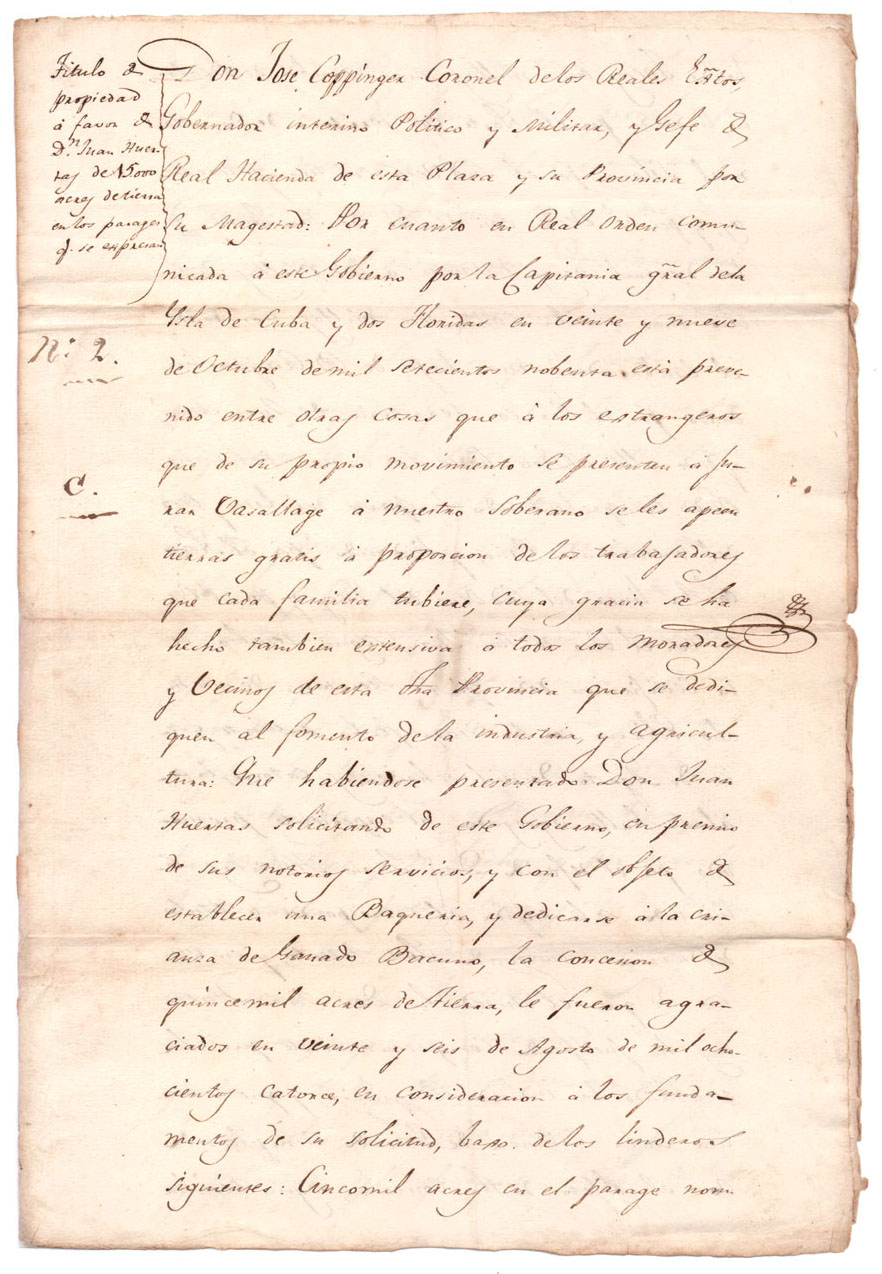 Titulo de
propiedad
á favor de
Dn. Juan Huer-
tas de 15000
acres de tierra
en los parages
q. se expresan
N.° 2.
C.
Don Jose Coppinger Coronel de los Reales Extos,
Gobernador interino Politico y Militar, y Gefe de
Real Hacienda de esta Plaza y su Provincia por
Su Magestad: Por cuanto en Real orden comu-
nicada á este Gobierno por la Capitania gral de la
Ysla de Cuba y dos Floridas en veinte y nueve
de Octubre de mil setecientos nobenta está preve-
nido entre otras cosas que á los extrangeros
que de su propio movimiento se presenten á ju-
rar Vasallage á nuestro soberano se les apeen
tierras gratis á proporcion de los trabajadores
que cada familia tubiere, cuya gracia se ha
hecho tambien extensiva á todos los moradores
y Vecinos de esta dha Provincia que se dedi-
quen al fomento de la industria, y agricul-
tura: Que habiendose presentado Don Juan
Huertas solicitando de este Gobierno, en premio
de sus notorios servicios, y con el objeto de
establecer una Baqueria, y dedicarse á la cri-
anza de Ganado Bacuno, la concesion de
quince mil acres de tierra, le fueron agra-
ciados en veinte y seis de Agosto de mil ocho-
cientos catorce, en consideracion á los funda-
mentos de su solicitud, baxo de los linderos
siguientes: Cincomil acres en el parage nom-